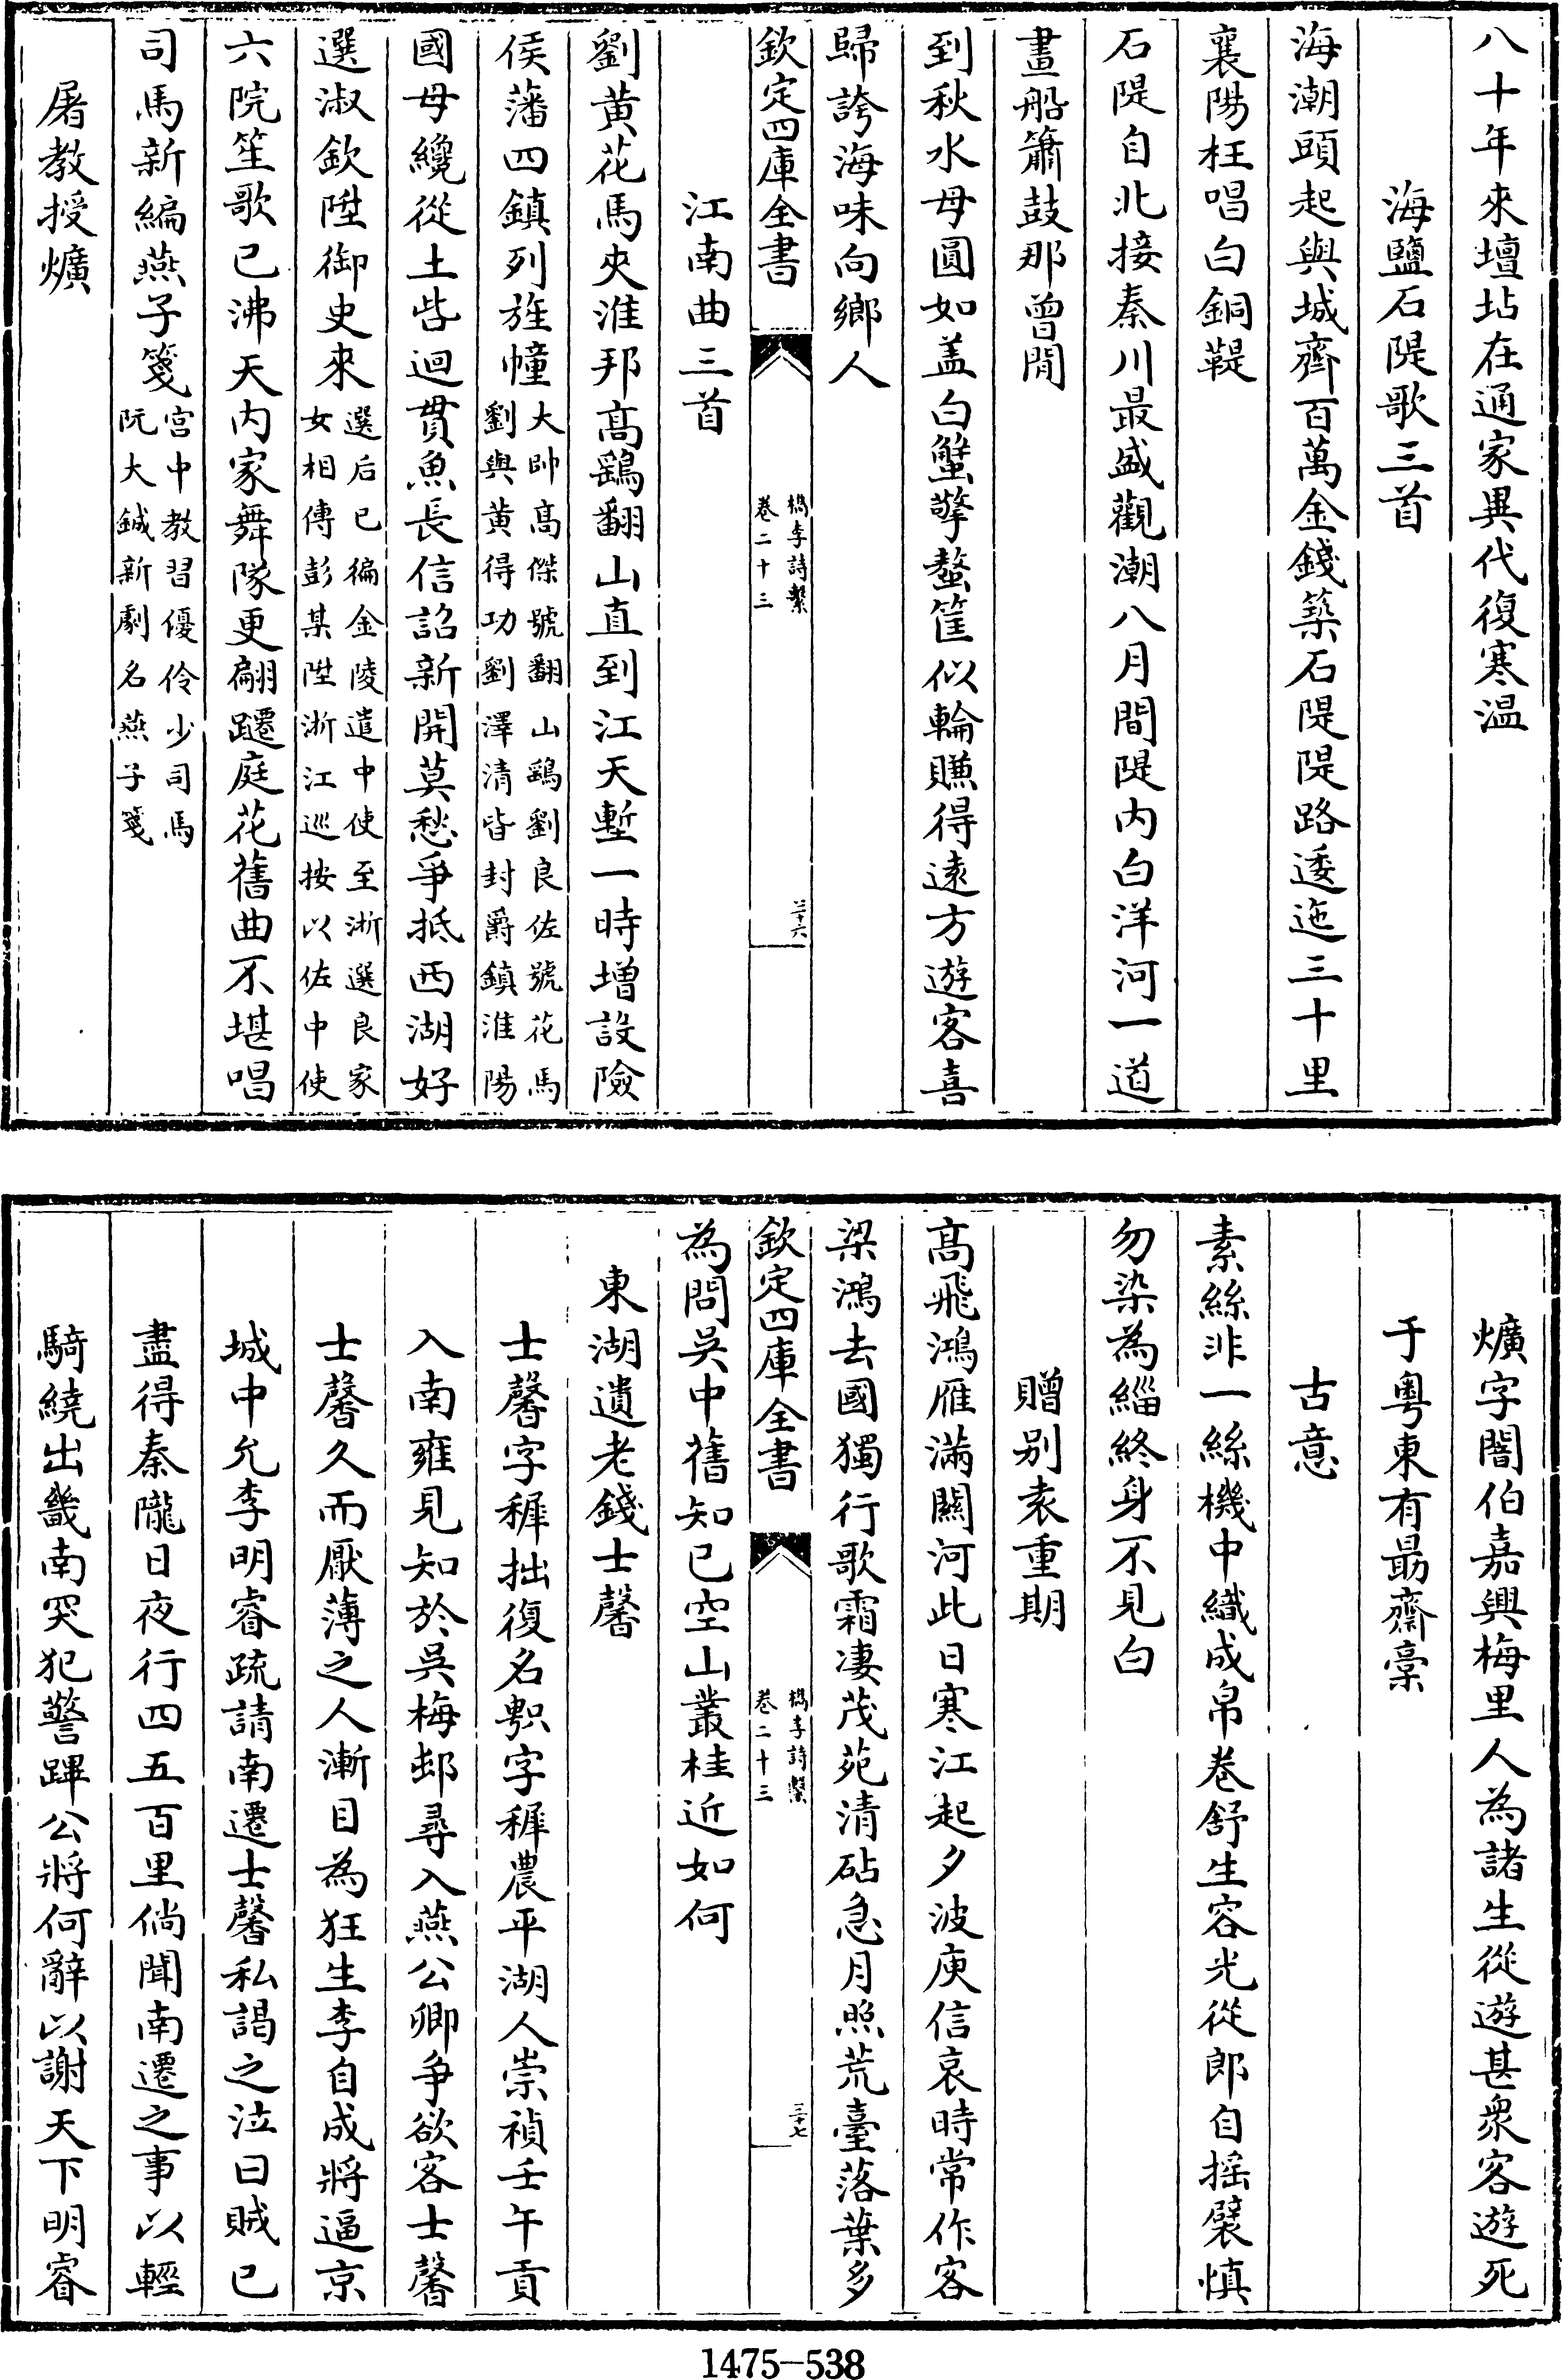 八十年來壇坫在通家異代復寒温
海鹽石隄歌三首
海潮頭起與城齊百萬金錢築石隄隄路逶迤三十里
襄陽枉唱白銅鞮
石隄自北接秦川最盛觀潮八月間隄内白洋河一道
畫船簫鼓那曾閒
到秋水母圓如盖白蟹擎螯筐似輪賺得遠方遊客喜
歸誇海味向鄉人
欽定四庫全書
檇李詩繫
卷二十三
三十六
江南曲三首
劉黄花馬夾淮邦髙鷂翻山直到江天塹一時增設險
侯藩四鎮列旌幢
大帥髙傑號翻山鷂劉良佐號花馬
劉與黄得功劉澤清皆封爵鎮淮陽
國母纔從土呰迴貫魚長信詔新開莫愁爭抵西湖好
選淑欽陞御史來
選后已徧金陵遣中使至浙選良家
女相傳彭某陞浙江巡按以佐中使
六院笙歌已沸天内家舞隊更翩躚庭花舊曲不堪唱
司馬新編燕子箋
宫中教習優伶少司馬
阮大鋮新劇名燕子箋
屠教授爌
爌字闇伯嘉興梅里人為諸生從遊甚衆客遊死
于粤東有勗齋稾
古意
素絲非一絲機中織成帛卷舒生容光從郎自摇襞慎
勿染為緇終身不見白
贈别袁重期
髙飛鴻雁滿關河此日寒江起夕波庾信哀時常作客
梁鴻去國獨行歌霜凄茂苑清砧急月照荒臺落葉多
欽定四庫全書
檇李詩繫
卷二十三
三十七
為問吳中舊知已空山叢桂近如何
東湖遺老錢士馨
士馨字穉拙復名䵹字穉農平湖人崇禎壬午貢
入南雍見知於吳梅邨尋入燕公卿争欲客士馨
士馨久而厭薄之人漸目為狂生李自成將逼京
城中允李明睿疏請南遷士馨私謁之泣曰賊已
盡得秦隴日夜行四五百里倘聞南遷之事以輕
騎繞出畿南突犯警蹕公將何辭以謝天下明睿
1475-538